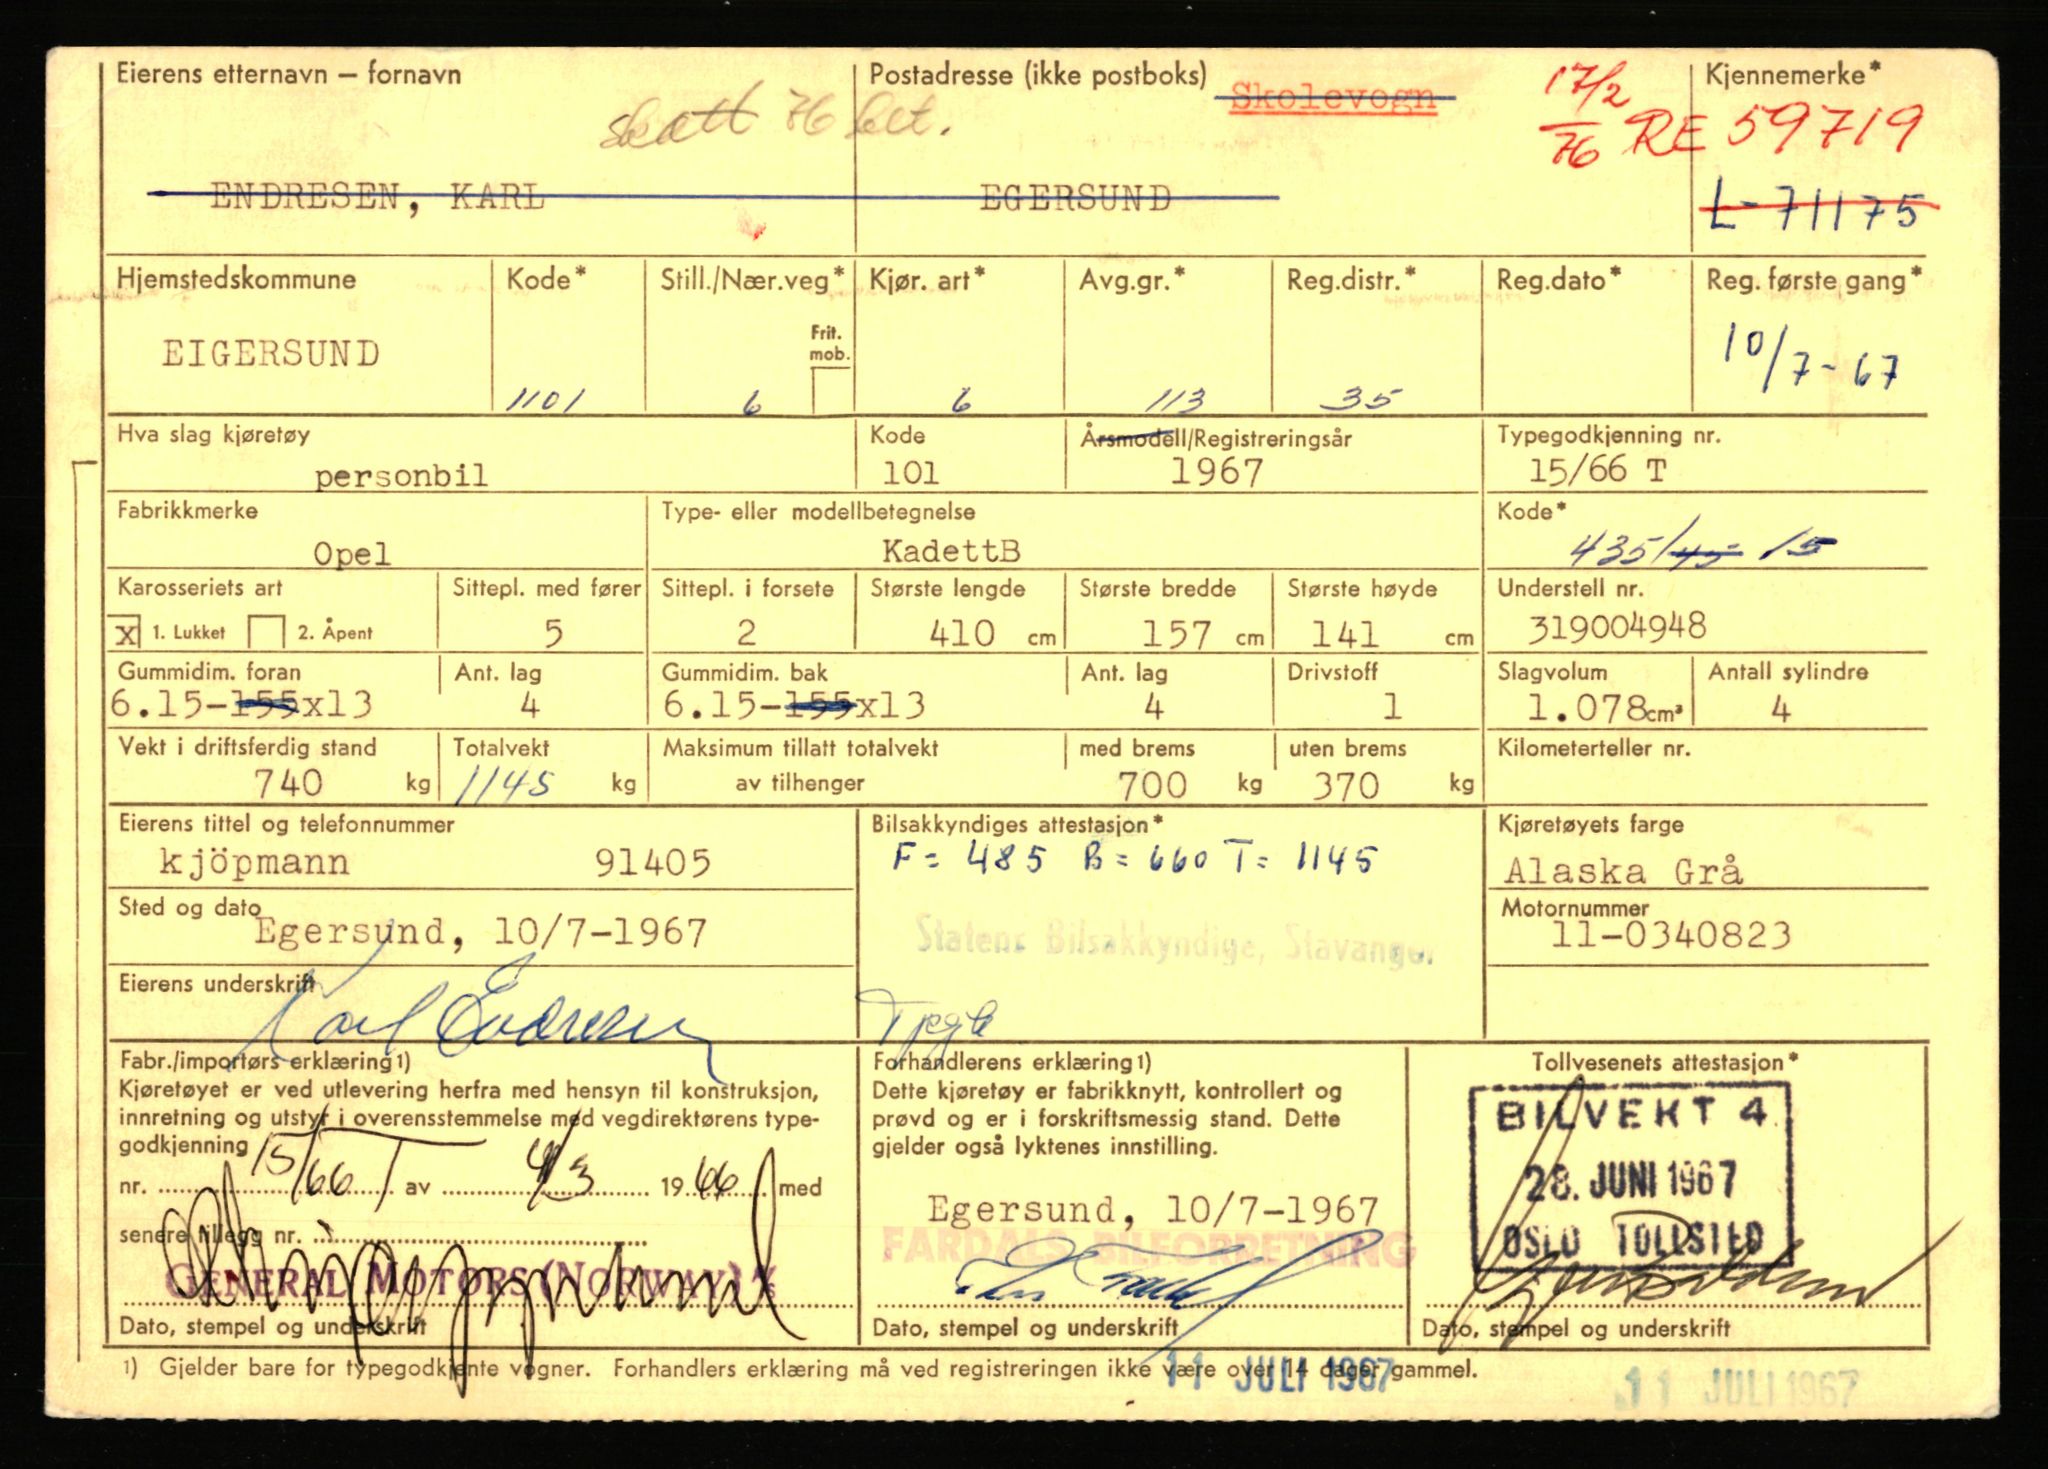 Eierens etternavn – fornavn
Postadresse (ikke postboks)
Skolevogn
17/2 76
RE 59719
Kjennemerke*
skatt 76 bet.
ENDRESEN, KARL
EGERSUND
L-71175
Hjemstedskommune
Kode*
Still./Nær.veg*
Kjør. art*
Avg.gr.*
Reg.distr.*
Reg.dato*
Reg. første gang*
EIGERSUND
1101
Frit. mob.
6
6
113
35
10/7-67
Hva slag kjøretøy
Kode
Årsmodell/Registreringsår
Typegodkjenning nr.
personbil
101
1967
15/66 T
Fabrikkmerke
Type- eller modellbetegnelse
Kode*
Opel
KadettB
435/45 15
Karosseriets art
Sittepl. med fører
Sittepl. i forsete
Største lengde
Største bredde
Største høyde
Understell nr.
x 1. Lukket
2. Åpent
5
2
410 cm
157 cm
141 cm
319004948
Gummidim. foran
Ant. lag
Gummidim. bak
Ant. lag
Drivstoff
Slagvolum
Antall sylindre
6.15-155x13
4
6.15-155x13
4
1
1.078cm³
4
Vekt i driftsferdig stand
Totalvekt
Maksimum tillatt totalvekt
med brems
uten brems
Kilometerteller nr.
740 kg
1145 kg
av tilhenger
700 kg
370 kg
Eierens tittel og telefonnummer
Bilsakkyndiges attestasjon*
Kjøretøyets farge
kjöpmann 91405
F = 485 B = 660 T = 1145
Alaska Grå
Sted og dato
Egersund, 10/7-1967
Statens Bilsakkyndige, Stavanger.
Motornummer
11-0340823
Eierens underskrift
Karl Endresen
Fabr./importørs erklæring 1)
Kjøretøyet er ved utlevering herfra med hensyn til konstruksjon,
innretning og utstyr i overensstemmelse med vegdirektørens type-
godkjenning
nr. 15/66 T av 4/3 1966 med
senere tillegg nr.
GENERAL MOTORS (NORWAY) A/S
Dato, stempel og underskrift
Forhandlerens erklæring 1)
Dette kjøretøy er fabrikknytt, kontrollert og
prøvd og er i forskriftsmessig stand. Dette
gjelder også lyktenes innstilling.
Egersund, 10/7-1967
FARDALS BILFORRETNING
Dato, stempel og underskrift
Tollvesenets attestasjon*
BILVEKT 4
28. JUNI 1967
OSLO TOLLSTED
Dato, stempel og underskrift
1) Gjelder bare for typegodkjente vogner. Forhandlers erklæring må ved registreringen ikke være over 14 dager gammel.
11 JULI 1967
11 JULI 1967